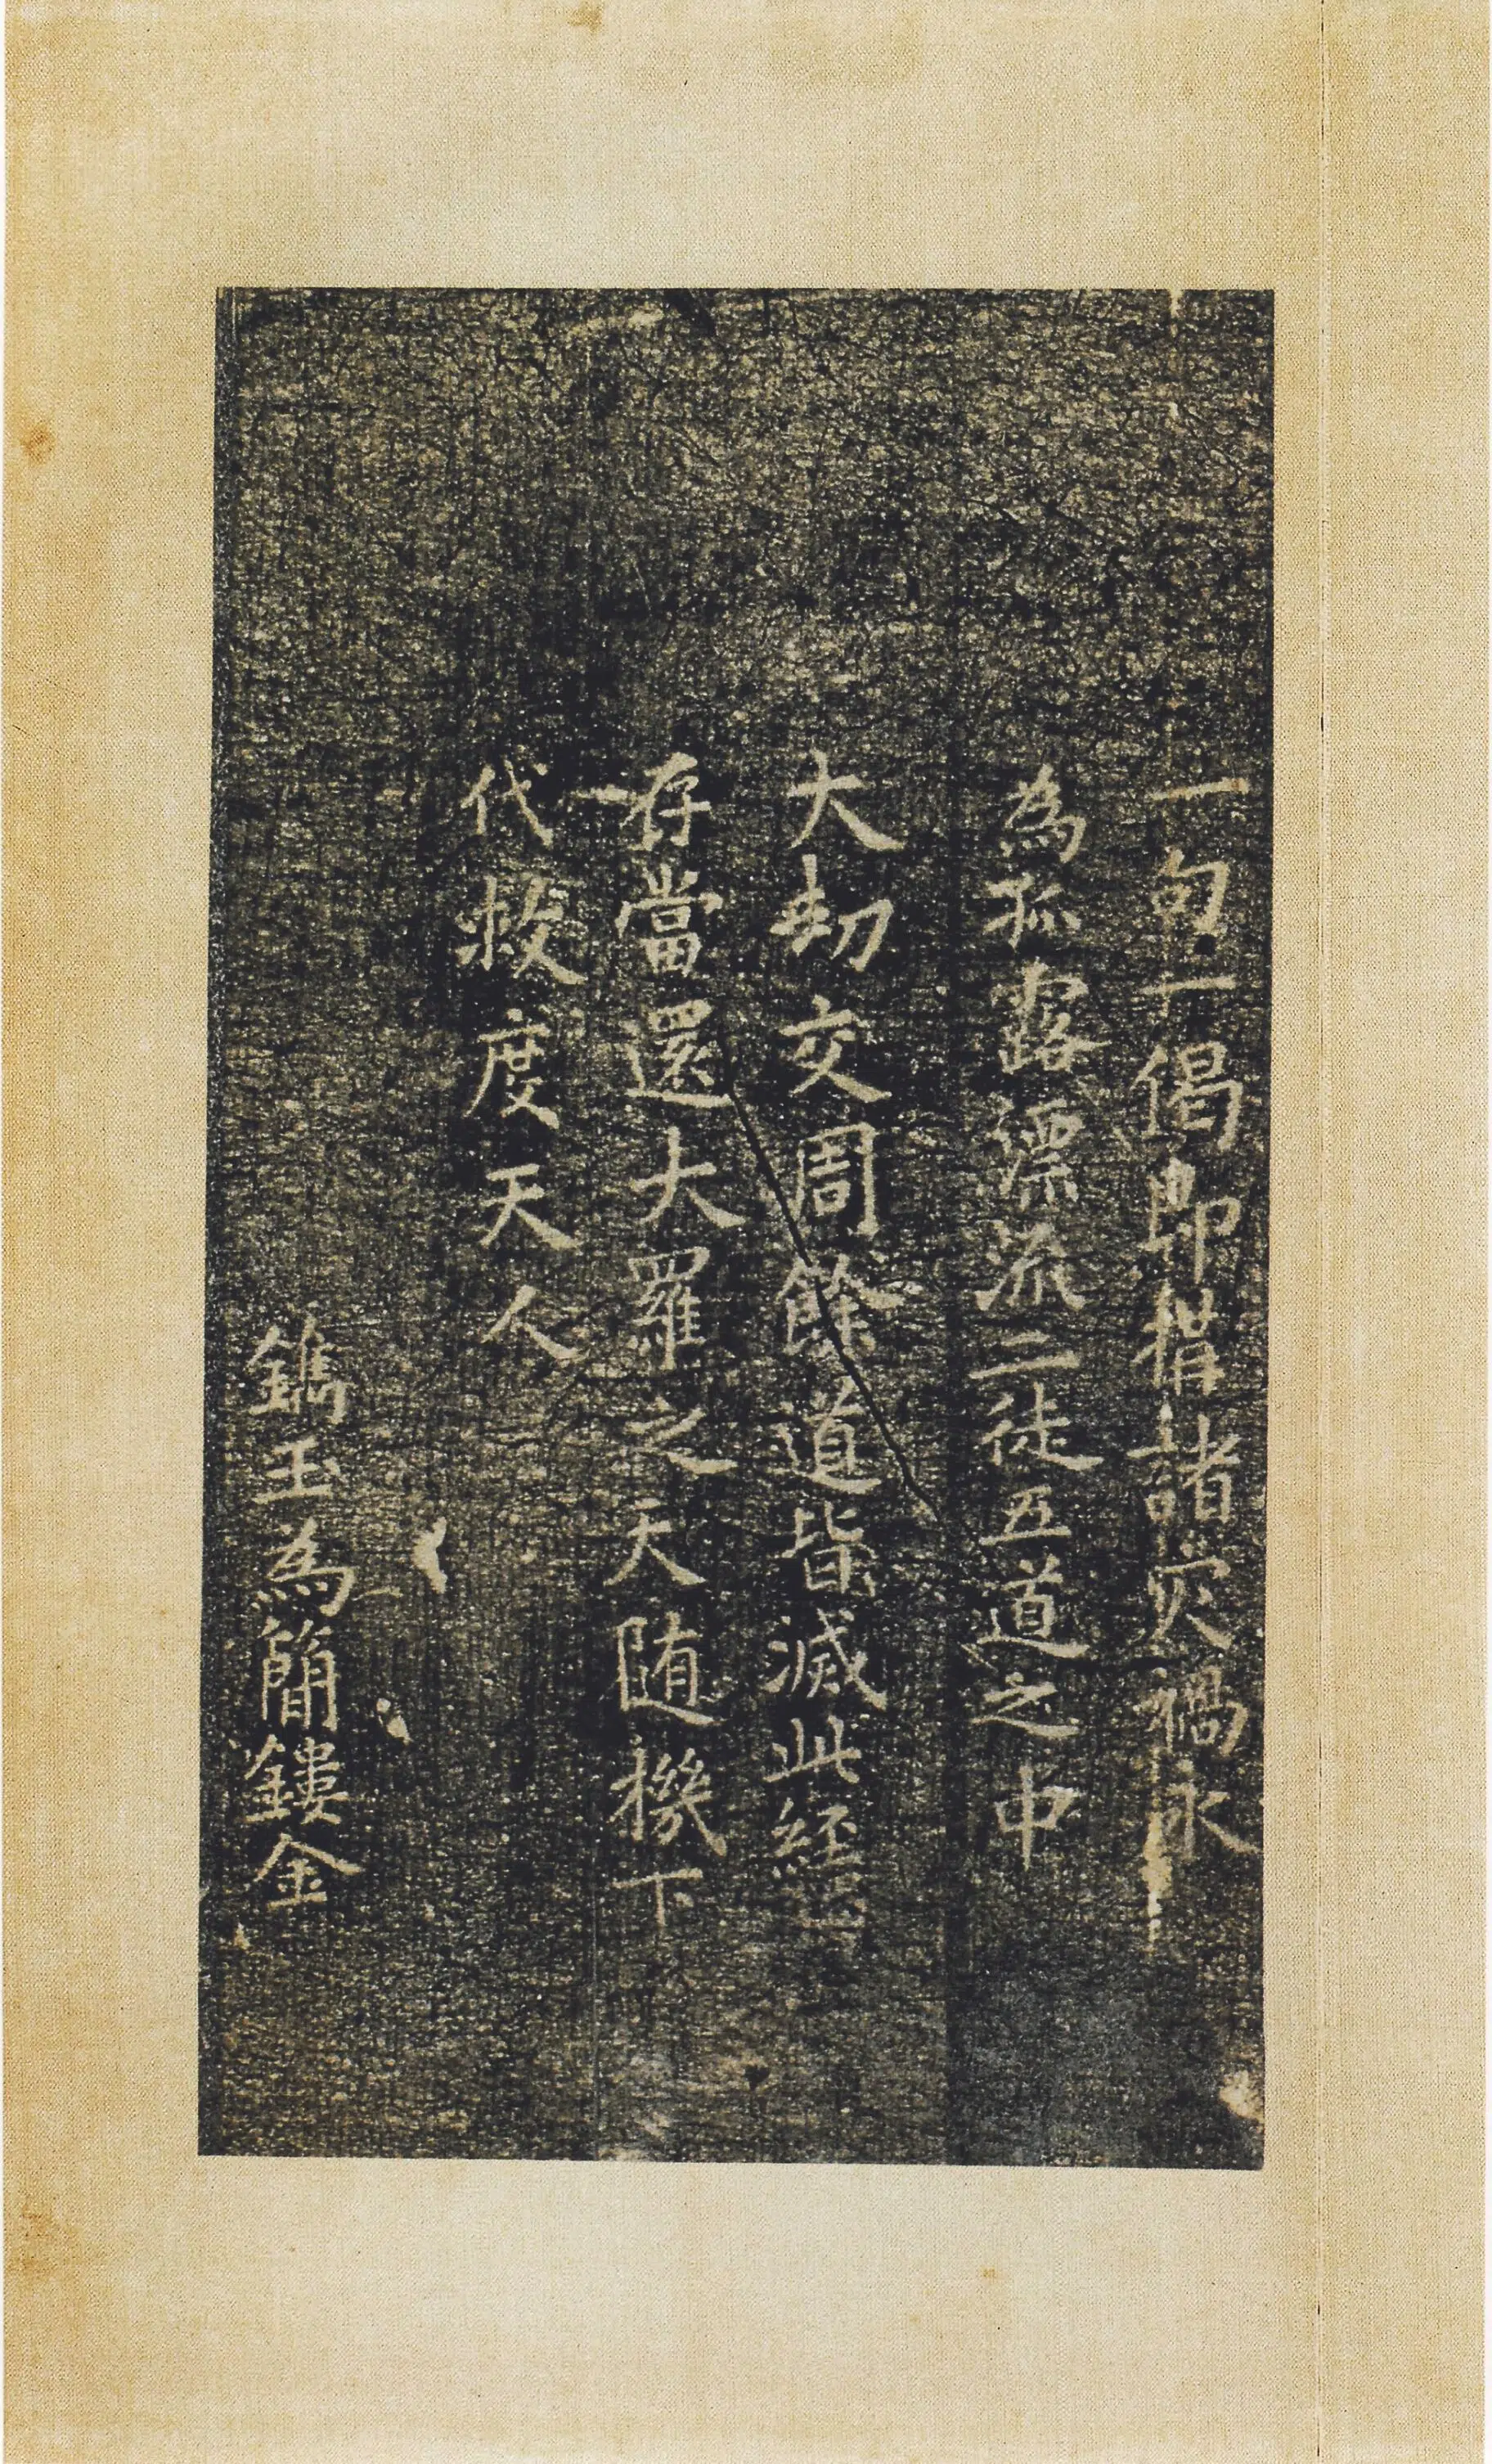 一句一偈即搆諸灾禍永
為孤露漂流二徒五道之中
大劫交周餘道皆滅此經
存當還大羅之天随機下
代救度天人
鐫玉為簡鏤金